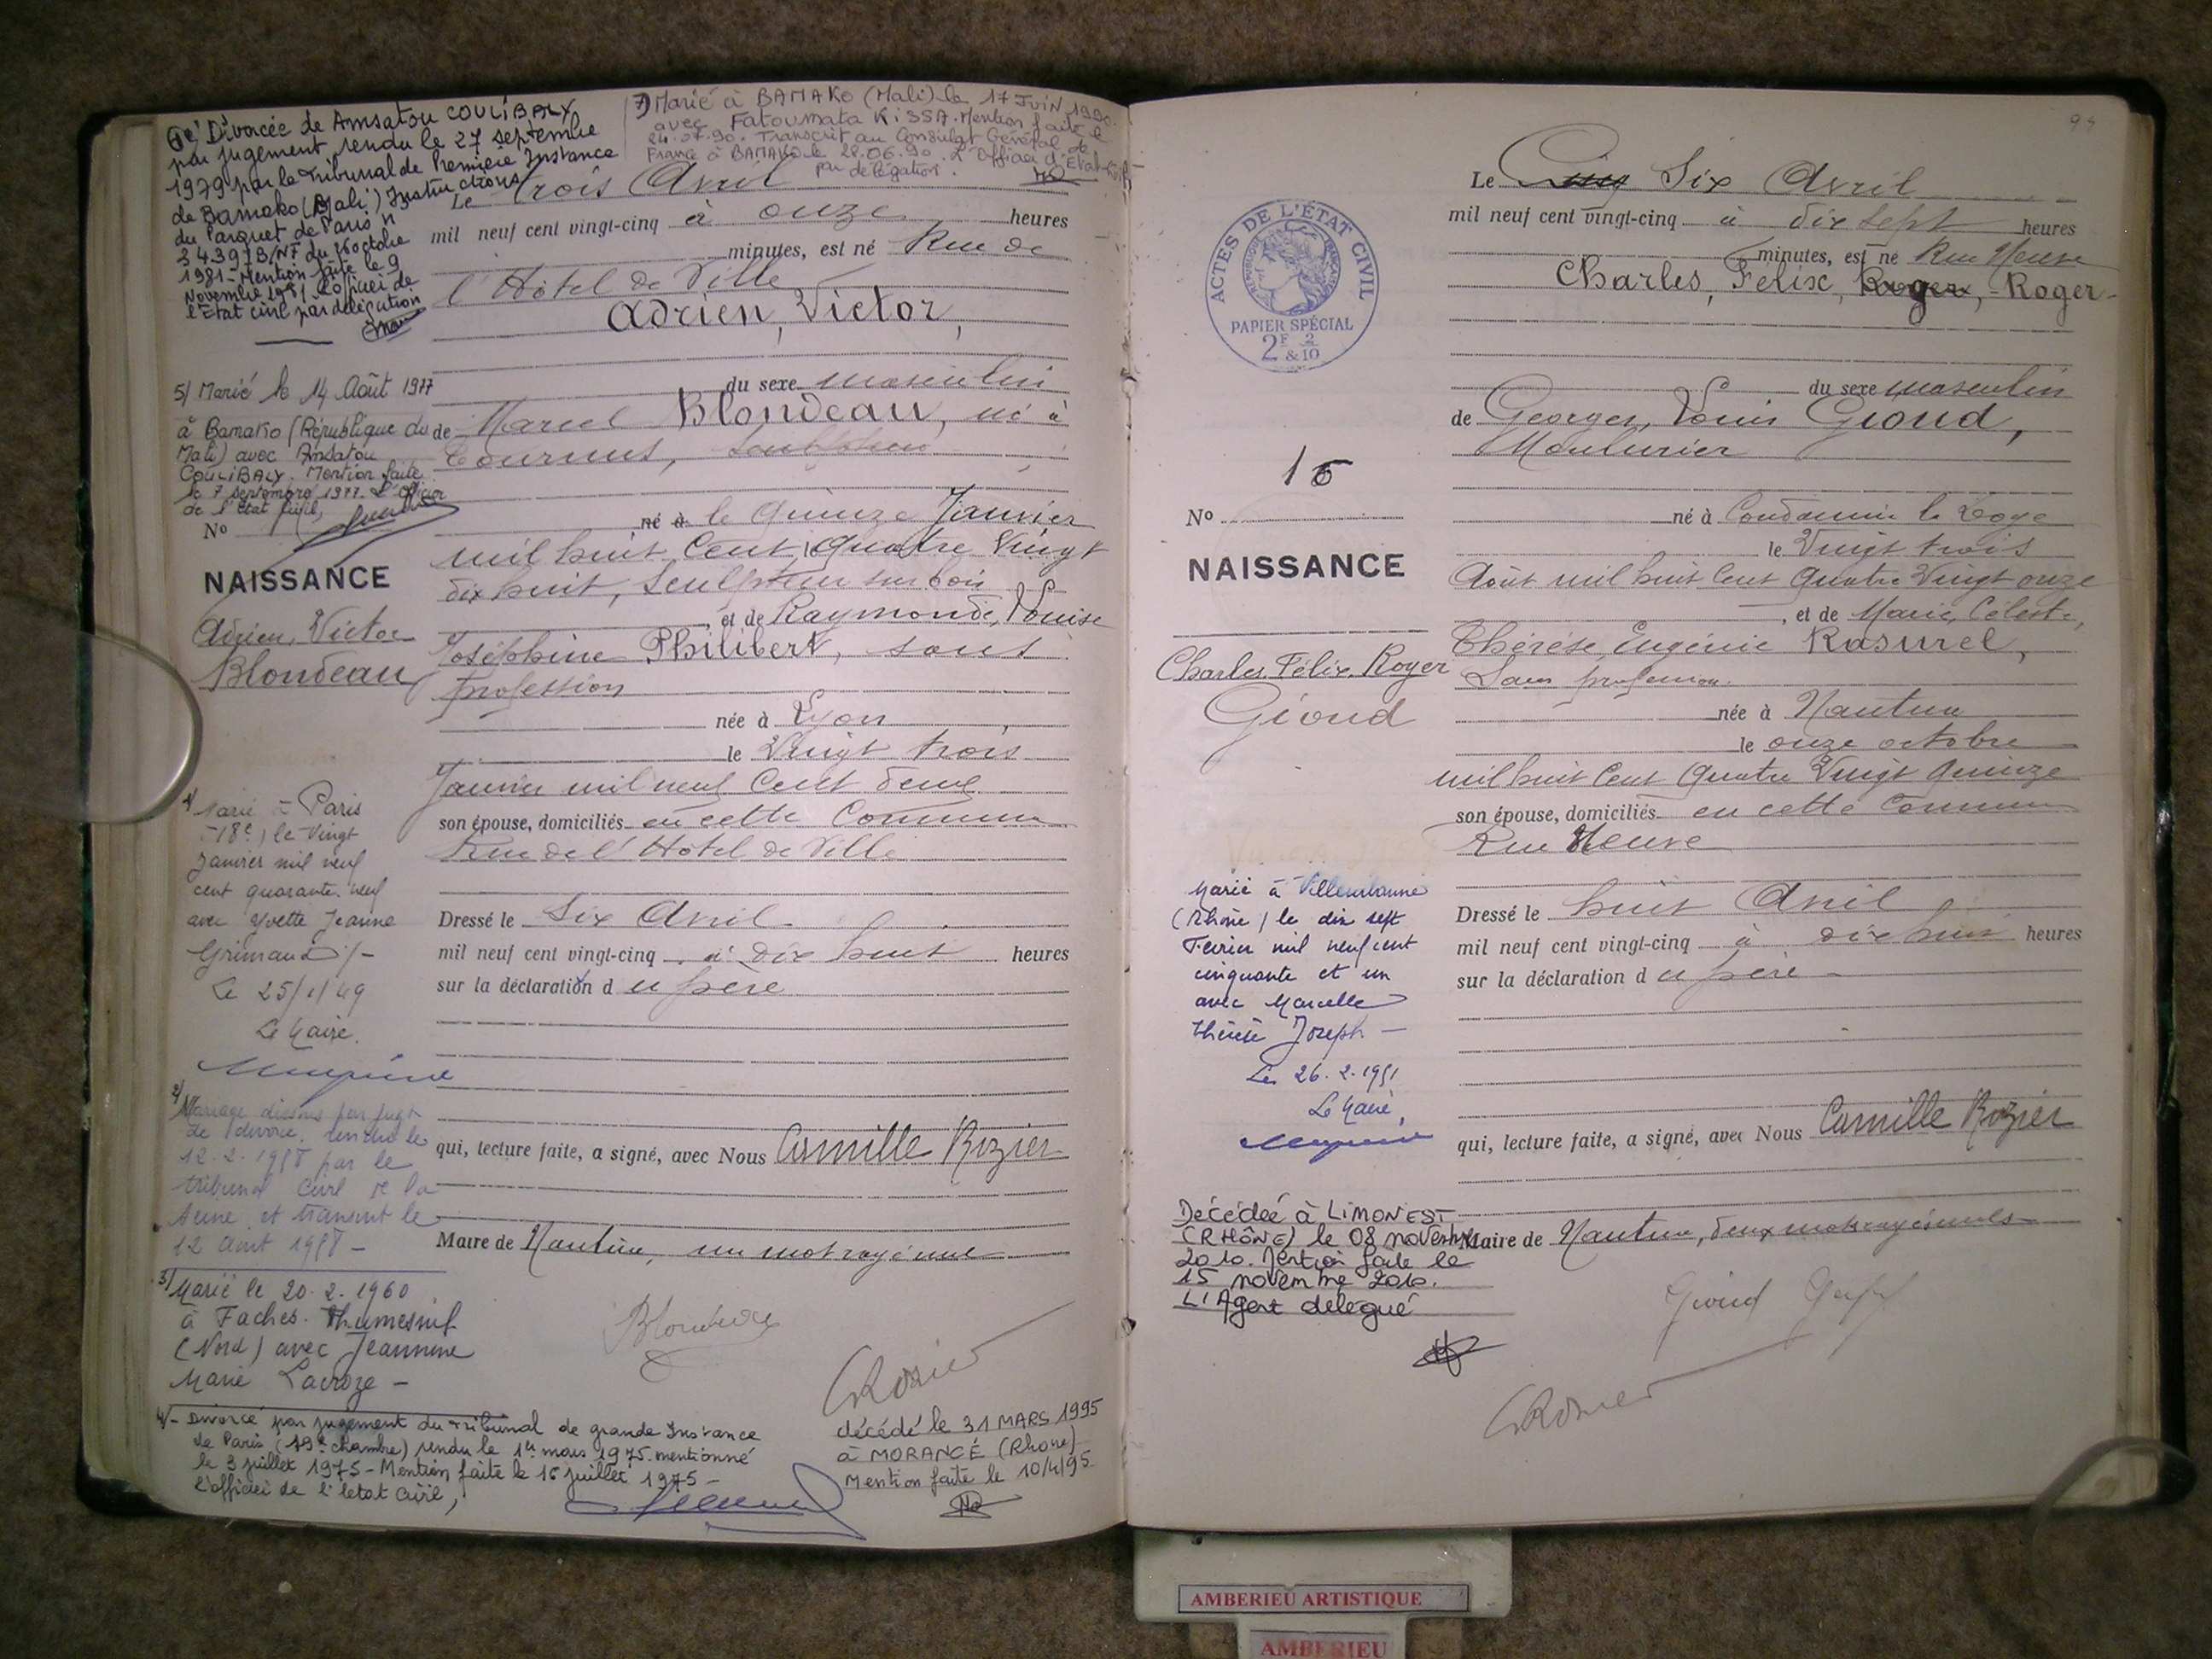 6e/ Divorcée de Amsatou COULIBALY
par jugement rendu le 27 septembre
1979 par le Tribunal de Première Instance
de Bamako (Mali) Instructions
du Parquet de Paris n
34.3973/NF du 26 octobre
1981 - Mention faite le 9
Novembre 1981 L'officier de
l'Etat civil par délégation
7) Marié à BAMAKO (Mali) le 17 JUIN 1990
avec Fatoumata KISSA. Mention faite le
24.07.90. Transcrit au Consulat Général de
France à BAMAKO le 28.06.90. L'Officier d'Etat Civil
par délégation.
Le trois Avril
mil neuf cent vingt-cinq à onze heures
minutes, est né Rue de
l'Hôtel de Ville
Adrien, Victor,
du sexe masculin
de Marcel Blondeau, né à
Tournus,
né à le Quinze Janvier
mil huit Cent le Quatre Vingt
dix huit, Sculpteur sur bois
, et de Raymonde, Louise
Joséphine Philibert, sans
profession
née à Lyon
le Vingt trois
Janvier mil neuf Cent deux
son épouse, domiciliés en cette Commune
Rue de l'Hôtel de Ville
Dressé le Six Avril
mil neuf cent vingt-cinq à dix huit heures
sur la déclaration du père
qui, lecture faite, a signé, avec Nous Camille Rozier
Maire de Nantua, un mot rayé nul
Blondeau
CRozier
5/ Marié le 14 Août 1977
à Bamako (République du
Mali) avec Amsatou
COULIBALY. Mention faite
le 7 septembre 1977. L'Officier
de l'Etat Civil,
No
NAISSANCE
Adrien, Victor
Blondeau
1/ Marié à Paris
(18e) le Vingt
Janvier mil neuf
cent quarante neuf
avec Yvette Jeanne
Grimaud /-
Le 25/1/49
Le Maire.
2/ Mariage dissous par jugt
de divorce rendu le
12.2.1958 par le
tribunal civil de la
Seine et transcrit le
12 Août 1958 -
3/ Marié le 20.2.1960
à Faches-Thumesnil
(Nord) avec Jeannine
Marie Lacroze -
4/- Divorcé par jugement du Tribunal de grande Instance
de Paris (19e chambre) rendu le 1er mars 1975 mentionné
le 3 juillet 1975 - Mention faite le 16 juillet 1975 -
L'officier de l'état civil,
décédé le 31 MARS 1995
à MORANCÉ (Rhône)
Mention faite le 10/4/95
Le Cinq Six Avril
mil neuf cent vingt-cinq à dix sept heures
minutes, est né Rue Neuve
Charles, Félix, Roger, - Roger -
du sexe masculin
de Georges, Louis Gioud,
Moulurier
né à Condamine la Doye
le Vingt trois
Août mil huit Cent Quatre Vingt onze
, et de Marie, Céleste,
Thérèse, Eugénie Rasurel,
Sans profession.
née à Nantua
le onze octobre
mil huit Cent Quatre Vingt Quinze
son épouse, domiciliés en cette Commune
Rue Neuve
Dressé le huit Avril
mil neuf cent vingt-cinq à dix huit heures
sur la déclaration du père
qui, lecture faite, a signé, avec Nous Camille Rozier
Maire de Nantua, deux mots rayés nuls
Gioud
CRozier
ACTES DE L'ÉTAT CIVIL
PAPIER SPÉCIAL
2F 2
&10
16
No
NAISSANCE
Charles, Félix, Roger
Gioud
Marié à Villeurbanne
(Rhône) le dix sept
Février mil neuf cent
cinquante et un
avec Marcelle
Thérèse Joseph -
Le 26.2.1951
Le Maire,
Décédée à LIMONEST
(RHÔNE) le 08 novembre
2010. Mention faite le
15 novembre 2010.
L'Agent délégué
AMBERIEU ARTISTIQUE
AMBERIEU